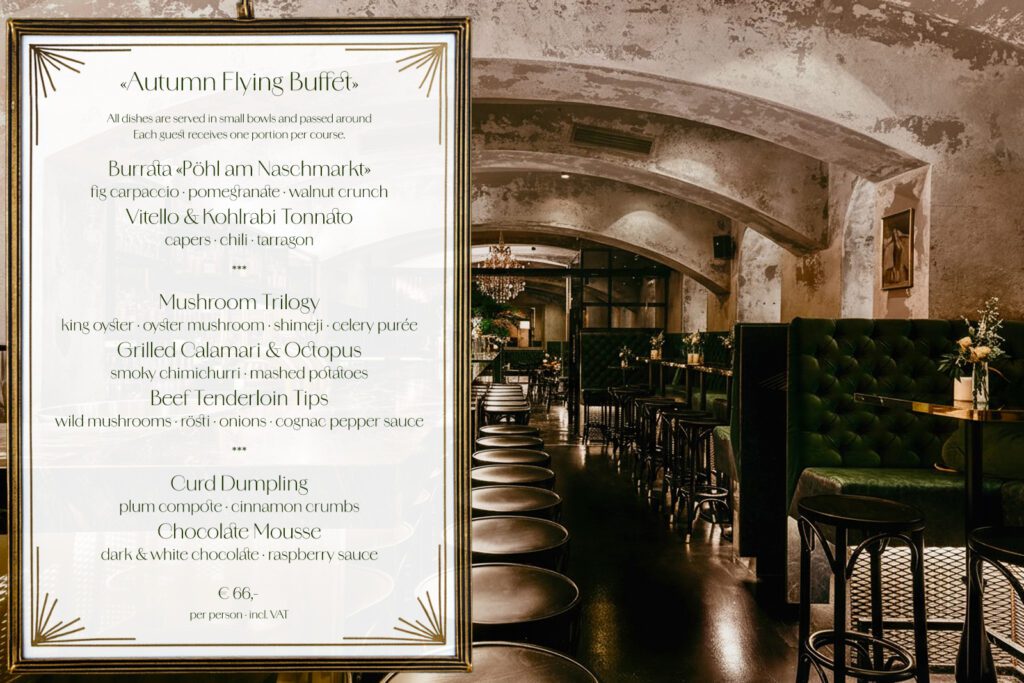 «Autumn Flying Buffet»
All dishes are served in small bowls and passed around
Each guest receives one portion per course.
Burrata «Pöhl am Naschmarkt»
fig carpaccio · pomegranate · walnut crunch
Vitello & Kohlrabi Tonnato
capers · chili · tarragon
***
Mushroom Trilogy
king oyster · oyster mushroom · shimeji · celery purée
Grilled Calamari & Octopus
smoky chimichurri · mashed potatoes
Beef Tenderloin Tips
wild mushrooms · rösti · onions · cognac pepper sauce
***
Curd Dumpling
plum compote · cinnamon crumbs
Chocolate Mousse
dark & white chocolate · raspberry sauce
€ 66,-
per person · incl. VAT